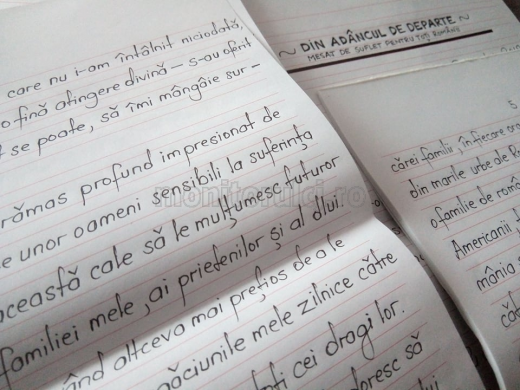 care nu i-am întâlnit niciodată,
o fină atingere divină – s-au oferit
se poate, să îmi mângâie sur-
rămas profund impresionat de
unor oameni sensibili la suferința
această cale să le mulțumesc tuturor
familiei mele, ai prietenilor și al d-lui
când altceva mai prețios de a le
găciunile mele zilnice către
cei dragi lor.
doresc să
~ DIN ADÂNCUL DE DEPARTE ~
MESAJ DE SUFLET PENTRU TOȚI ROMÂNII
S
cărei familii, în fiecare
din marile urbe ale
o familie de
Americanii,
mânia
monitorulcj.ro